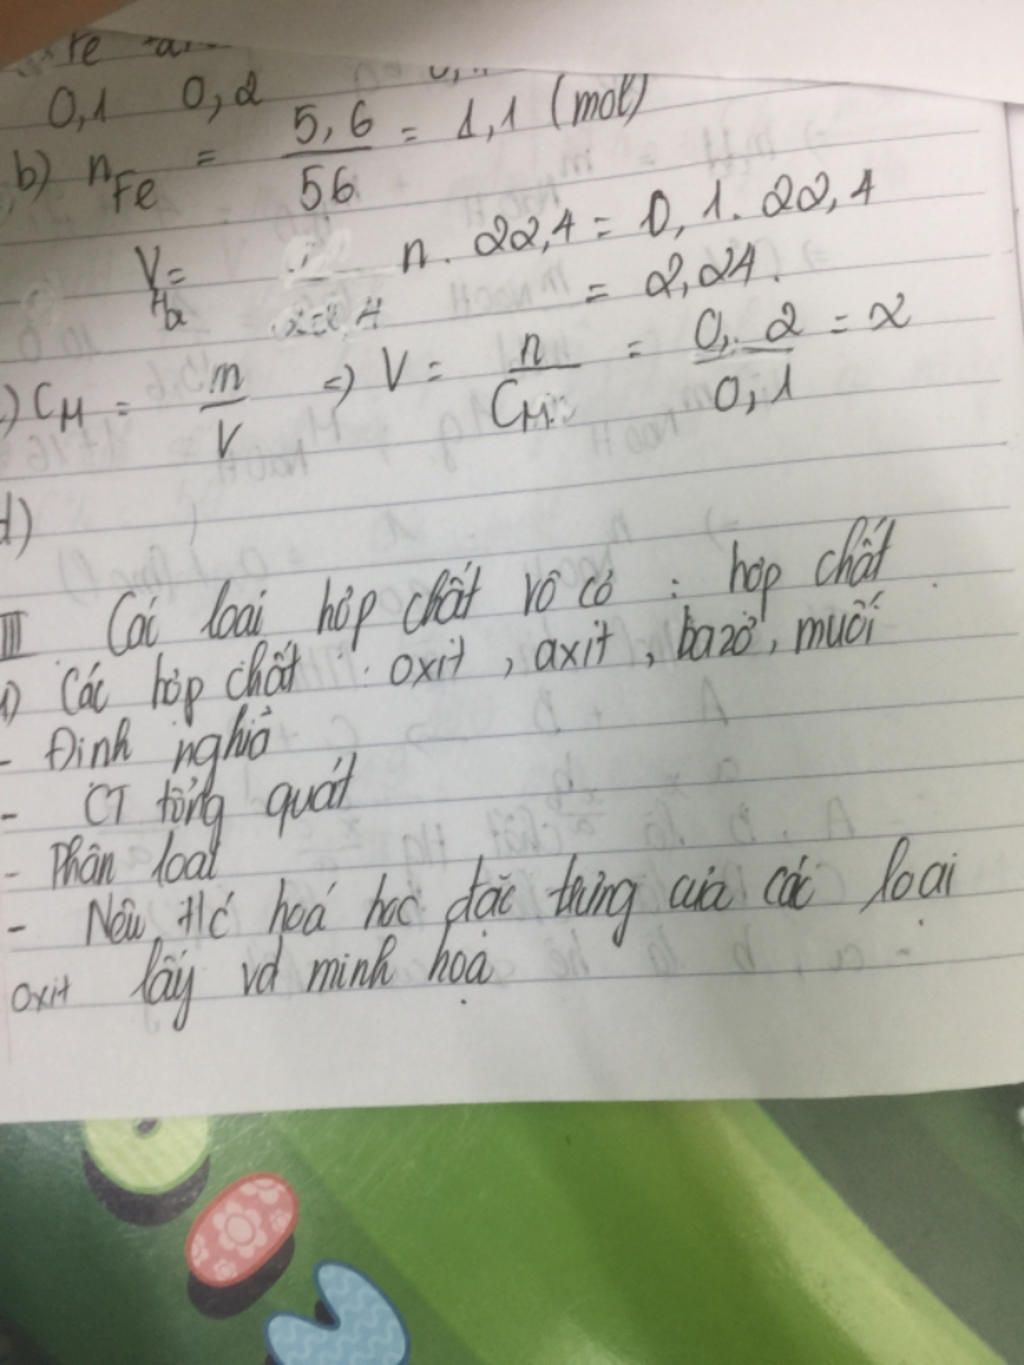 0,1 0,2
b) nFe = 5,6/56 = 1,1 (mol)
VH2 = n. 22,4 = 0,1. 22,4
= 2,24.
c) CM = m/V => V = n/CM = 0,2/0,1 = 2
d)
III Cái loại hợp chất vô cơ : hợp chất
1) Các hợp chất : oxit, axit, bazơ, muối
- Định nghiã
- CT tổng quát
- Phân loại
- Nêu t/c hoá học đặc trưng của các loại
oxit lấy vd minh hoạ